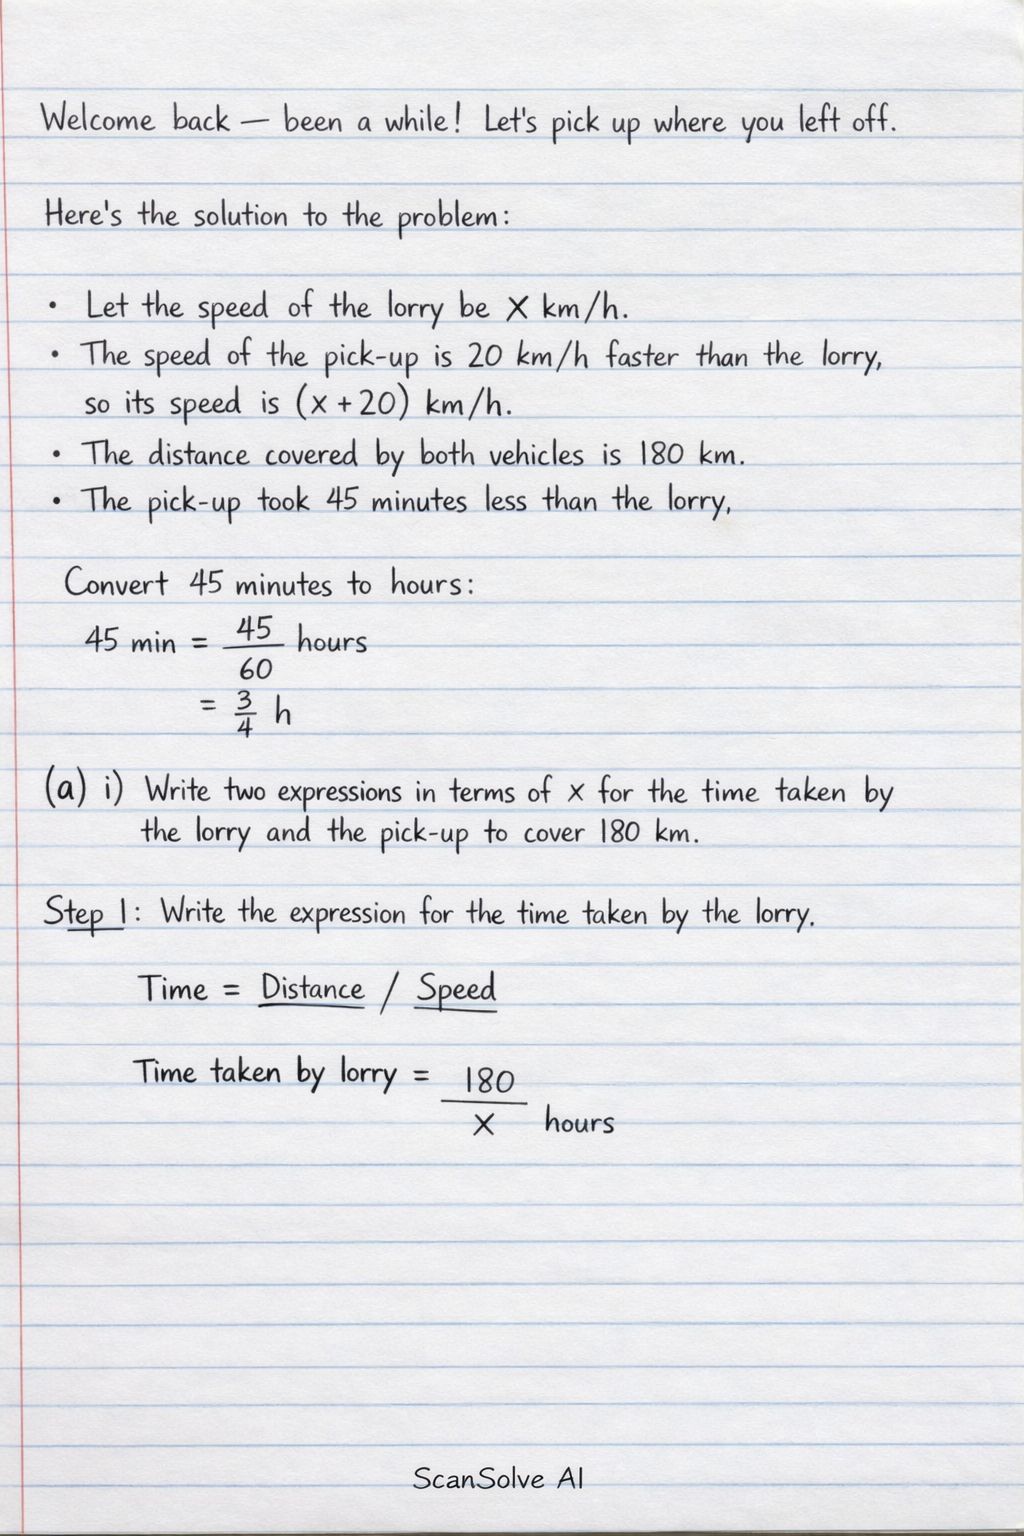 Welcome back — been a while! Let's pick up where you left off.
Here's the solution to the problem:
• Let the speed of the lorry be X km/h.
• The speed of the pick-up is 20 km/h faster than the lorry,
so its speed is (x + 20) km/h.
• The distance covered by both vehicles is 180 km.
• The pick-up took 45 minutes less than the lorry,
Convert 45 minutes to hours:
45 min = 45/60 hours
= 3/4 h
(a) i) Write two expressions in terms of x for the time taken by
the lorry and the pick-up to cover 180 km.
Step 1: Write the expression for the time taken by the lorry.
Time = Distance / Speed
Time taken by lorry = 180/x hours
ScanSolve AI